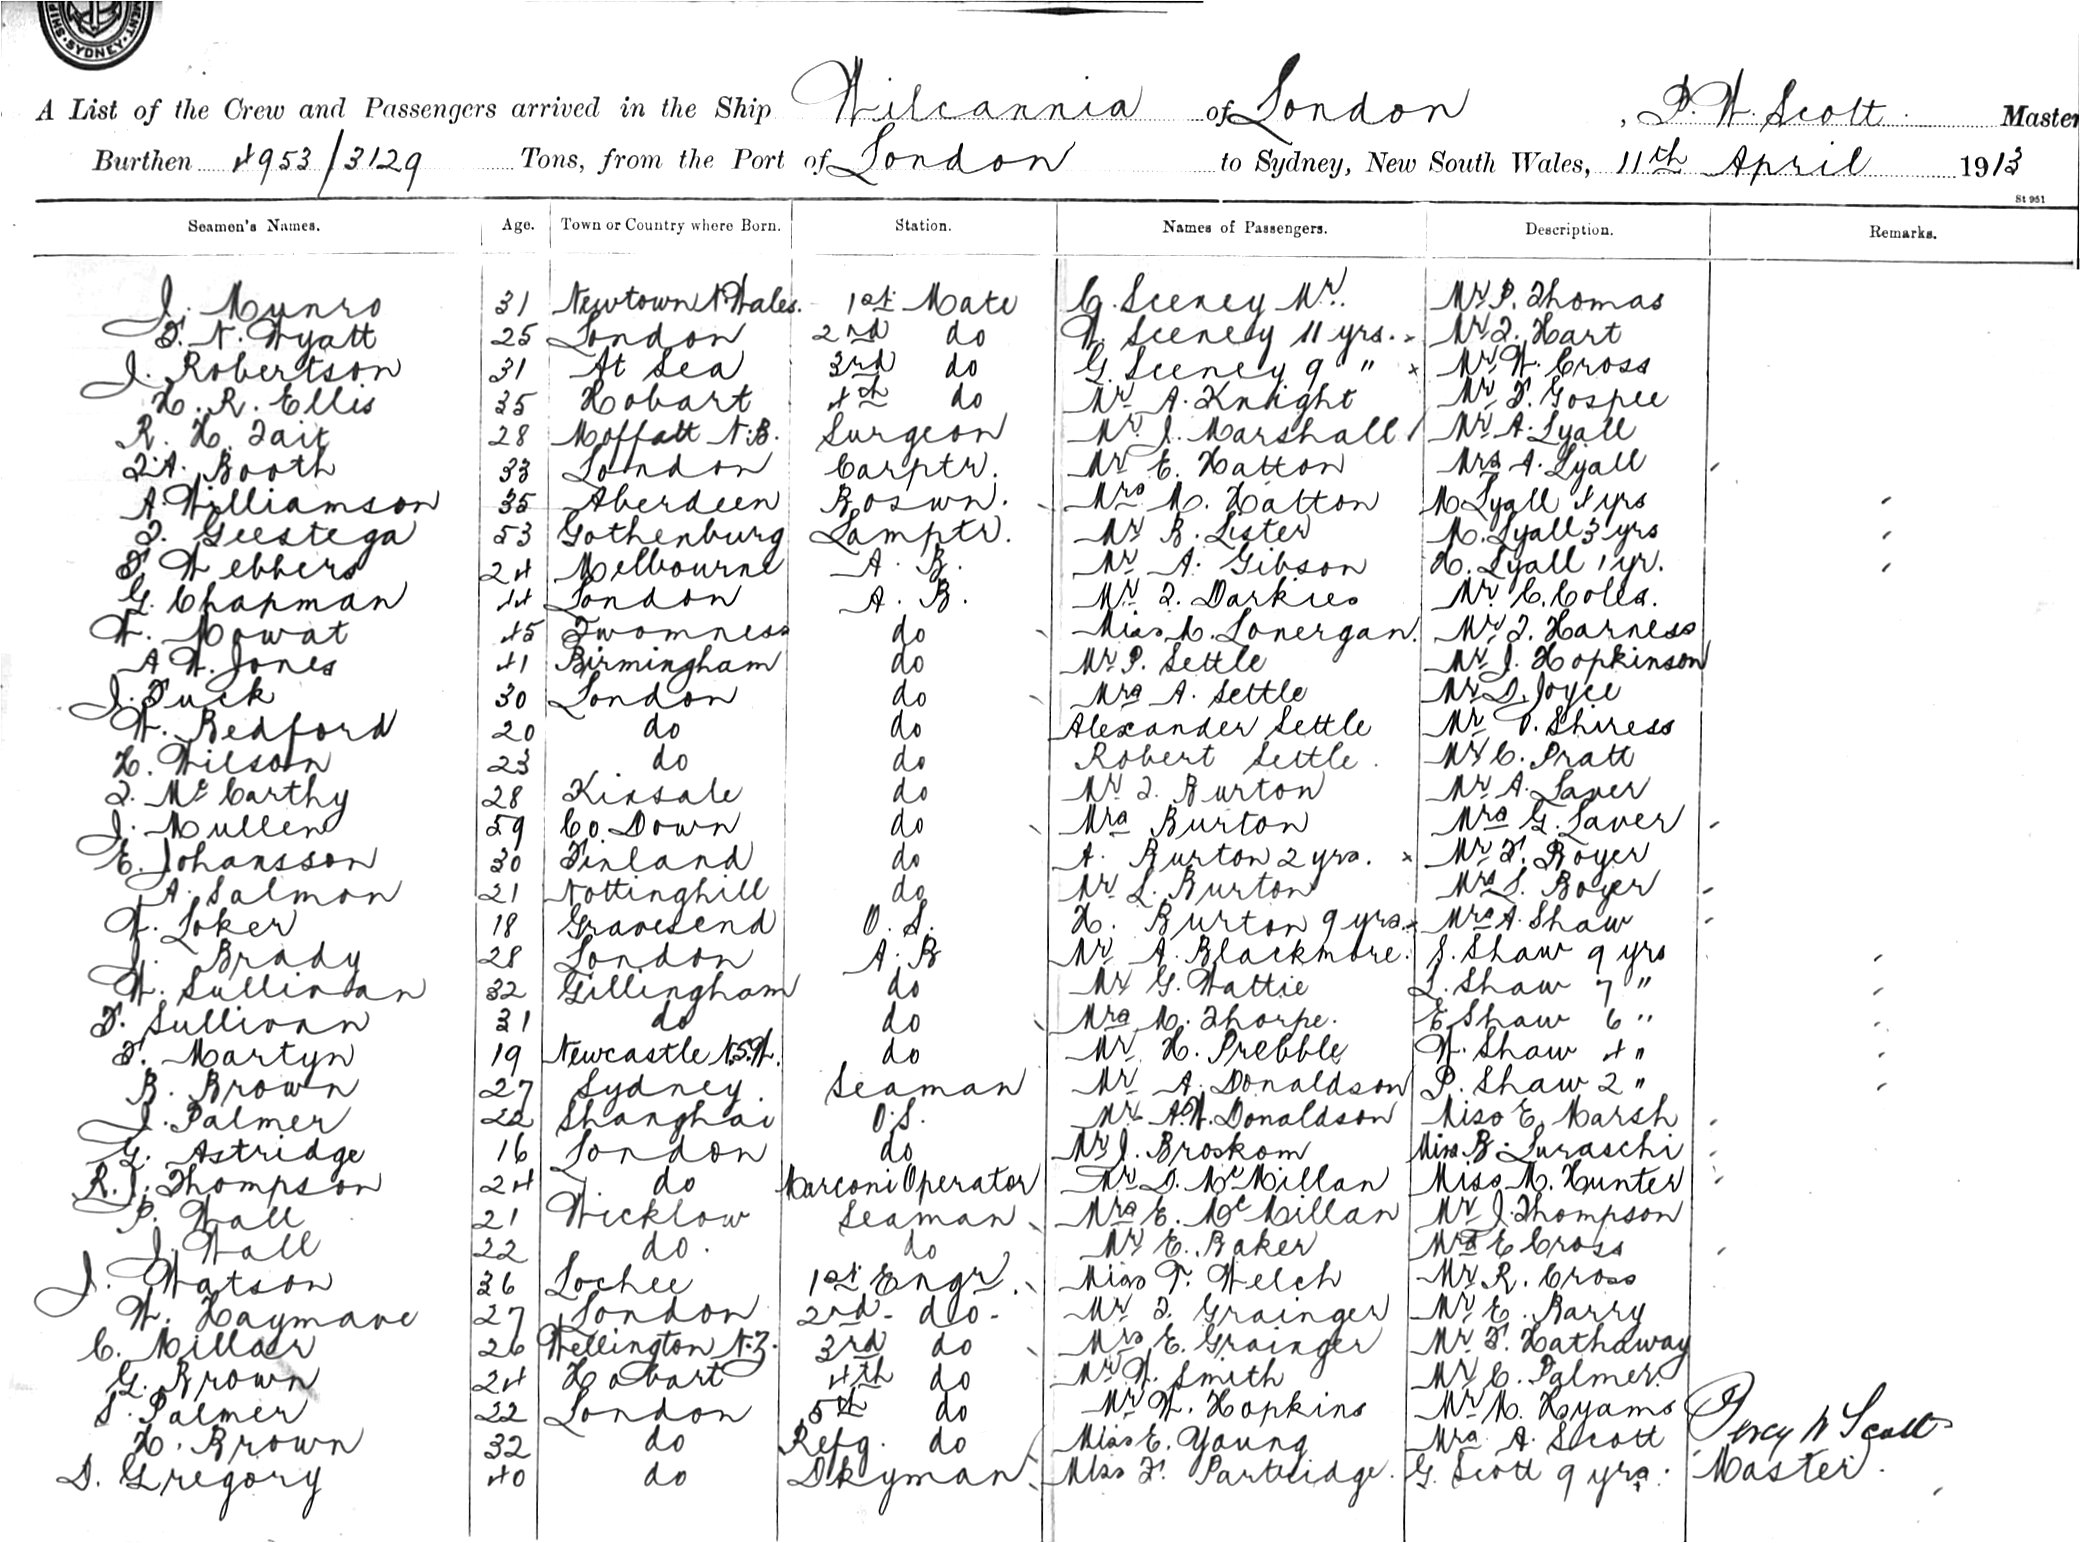 SYDNEY
A List of the Crew and Passengers arrived in the Ship Wilcannia of London, P. W. Scott Master
Burthen 4953/3129 Tons, from the Port of London to Sydney, New South Wales, 11th April 1913
St 951
Seamen's Names. Age. Town or Country where Born. Station. Names of Passengers. Description. Remarks.
J. Munro 31 Newtown N. Wales. 1st Mate C. Sceney Mr. Mr P. Thomas
F. N. Wyatt 25 London 2nd do W. Sceney 11 yrs. Mr T. Hart
J. Robertson 31 At Sea 3rd do G. Sceney 9 " Mr W. Cross
H. R. Ellis 35 Hobart 4th do Mr A. Knight Mr F. Gospee
R. H. Tait 28 Moffatt N.B. Surgeon Mr. J. Marshall Mr A. Lyall
T.A. Booth 33 London Carptr. Mr E. Hatton Mrs A. Lyall
A. Williamson 35 Aberdeen Boswn. Mrs M. Hatton M Lyall 4 yrs
T. Geestega 53 Gothenburg Lamptr. Mr B. Lister M. Lyall 3 yrs
F. Webbers 24 Melbourne A. B. Mr A. Gibson H. Lyall 1 yr.
G. Chapman 44 London A. B. Mr T. Darkies Mr C. Colls.
W. Mowat 45 Twomness do Miss M. Lonergan. Mr T. Harness
A W. Jones 41 Birmingham do Mr P. Settle Mr J. Hopkinson
J. Tuck 30 London do Mrs A. Settle Mr D. Joyce
W. Bedford 20 do do Alexander Settle Mr O. Shiress
H. Wilson 23 do do Robert Settle. Mr C. Pratt
T. McCarthy 28 Kinsale do Mr T. Burton Mr A. Laver
J. Mullen 59 Co. Down do Mrs Burton Mrs G. Laver
E. Johansson 30 Finland do A. Burton 2 yrs. Mr F. Boyer
A. Salmon 21 Nottinghill do Mr L. Burton Mrs L. Boyer
W. Loker 18 Gravesend O. S. H. Burton 9 yrs. Mrs A. Shaw
J. Brady 28 London A. B Mr A. Blackmore. S. Shaw 9 yrs
W. Sullivan 32 Gillingham do Mr G. Wattie L. Shaw 7 "
F. Sullivan 31 do do Mrs M. Thorpe. E Shaw 6 "
F. Martyn 19 Newcastle N.S.W. do Mr H. Prebble W. Shaw 4 "
B. Brown 27 Sydney. Seaman Mr A. Donaldson P. Shaw 2 "
J. Palmer 22 Shanghai O.S. Mr A.W. Donaldson Miss E. Marsh
G. Astridge 16 London do Mr J. Broskom Miss B. Luraschi
R. J. Thompson 24 do Marconi Operator Mr D. McMillan Miss M. Hunter
P. Wall 21 Wicklow Seaman Mrs E. McMillan Mr J. Thompson
J. Wall 22 do. do Mr E. Baker Mrs E Cross
J. Watson 36 Lochee 1st Engr. Miss F. Welch Mr R. Cross
W. Haymane 27 London 2nd - do - Mr T. Grainger Mr E. Barry
C. Millar 26 Wellington N.Z. 3rd do Mrs E. Grainger Mr F. Hathaway
G. Brown 24 Hobart 4th do Mr W. Smith Mr C. Palmer.
S. Palmer 22 London 5th do Mr W. Hopkins Mr M. Hyams Percy W Scott
H. Brown 32 do Refg. do Miss E. Young Mrs A. Scott
D. Gregory 40 do Dkyman Miss F. Partridge. G. Scott 9 yrs. Master.